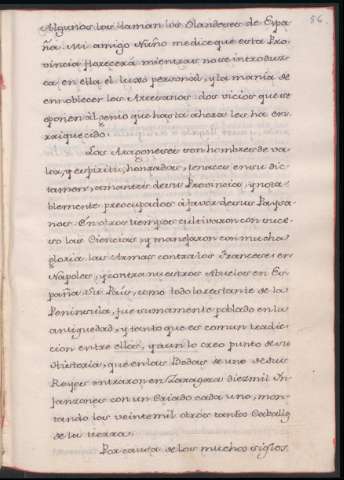 56
Algunos los llaman los Olandeses de Espa-
ña. Mi amigo Nuño me dice que esta Pro-
vincia florecerá mientras no se introduzca
en ella el luxo personal, y la mania de
ennoblecer los Artesanos: dos vicios que se
oponen al genio que hasta ahora les ha en-
rriquecido.
Los Aragoneses son hombres de va-
lor, y espiritu, honrados, tenaces en su dic-
tamen, amantes de su Provincia, y nota-
blemente preocupados à favor de sus Paysa-
nos. En otros tiempos cultivaron con suce-
so las Ciencias, y manejaron con mucha
gloria las Armas contra los Franceses en
Napoles, y contra nuestros Abuelos en Es-
paña. Su País, como todo lo restante de la
Peninsula, fue sumamente poblado en la
antiguedad, y tanto que es comun tradi-
cion entre ellos, y aun lo creo punto de su
Historia, que en las Bodas de uno de sus
Reyes entraron en Zaragoza diez mil In-
fanzones con un Criado cada uno, mon-
tando los veinte mil otros tantos Caballos
de la tierra.
Por causa de los muchos siglos,